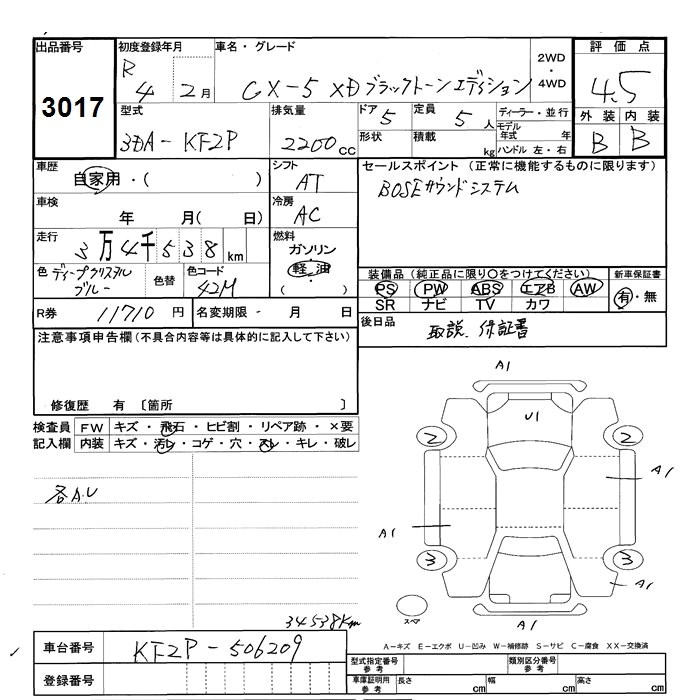 出品番号 初度登録年月 車名・グレード 2WD・4WD 評価点
3017 R 4 2月 CX-5 XDブラックトーンエディション 4.5
型式 排気量 ドア 5 定員 5人 ディーラー・並行 外装 内装
3DA-KF2P 2200cc 形状 積載 kg モデル年式 年 ハンドル 左・右 B B
車歴 自家用・( ) シフト AT セールスポイント (正常に機能するものに限ります)
BOSEサウンドシステム
車検 年 月( 日) 冷房 AC
走行 3万4千538km 燃料 ガソリン 軽油 ( )
色 ディープクリスタルブルー 色替 色コード 42M
装備品(純正品に限り〇をつけてください) 新車保証書
PS PW ABS エアB AW 有・無
SR ナビ TV カワ
R券 11710円 名変期限 - 月 日 後日品 取説、保証書
注意事項申告欄(不具合内容等は具体的に記入して下さい)
修復歴 有 〔箇所 〕
検査員記入欄 FW キズ・飛石・ヒビ割・リペア跡・×要
内装 キズ・汚レ・コゲ・穴・スレ・キレ・破レ
各A.U
A1
U1
2 2
A1
A1
3 3
A1
スペア
A1
34538Km
A-キズ E-エクボ U-凹み W-補修跡 S-サビ C-腐食 XX-交換済
車台番号 KF2P-506209
登録番号
型式指定番号 参考 類別区分番号 参考
車庫証明用 参考 長さ cm 幅 cm 高さ cm